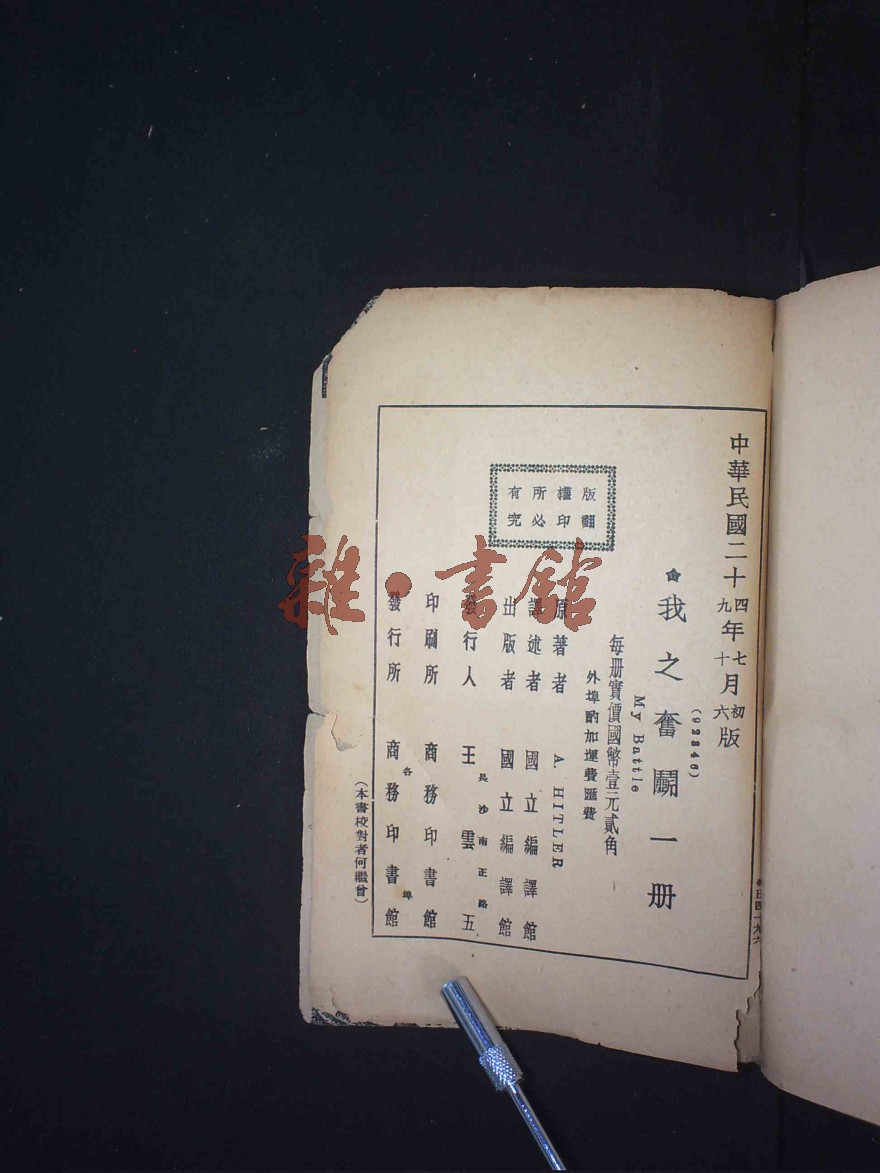 中華民國二十四九年七十月初六版
我之奮鬭一册
My Battle
每册實價國幣壹元貳角
外埠酌加運費匯費
版權所有
翻印必究
原著者 A. HITLER
譯述者 國立編譯館
出版者 國立編譯館
長沙南正路
發行人 王雲五
印刷所 商務印書館
各埠
發行所 商務印書館
(本書校對者何繼曾)
雜·書館